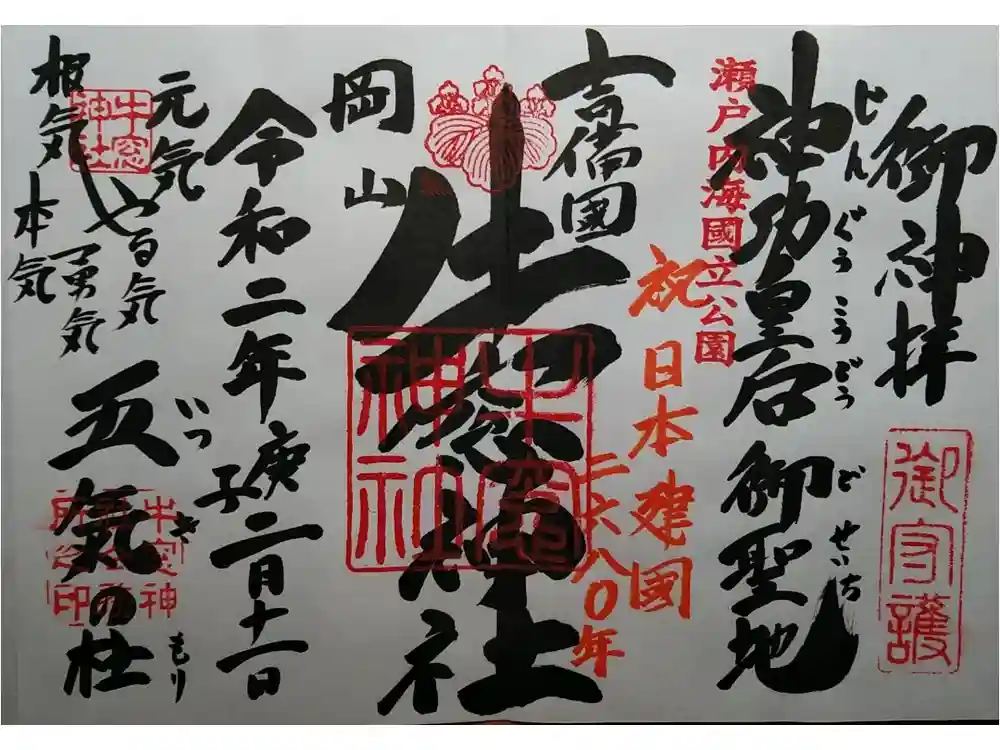 御神拝
御守護
じんぐうこうごう ごせいち
神功皇后御聖地
瀬戸内海國立公園
祝 日本建國
二六八0年
吉備國
牛窓神社
牛窓
神社
岡山
令和二年庚子二月十一日
元気
やる気
勇気
根気
本気
牛窓
神社
いつ き もり
五氣の杜
牛窓神